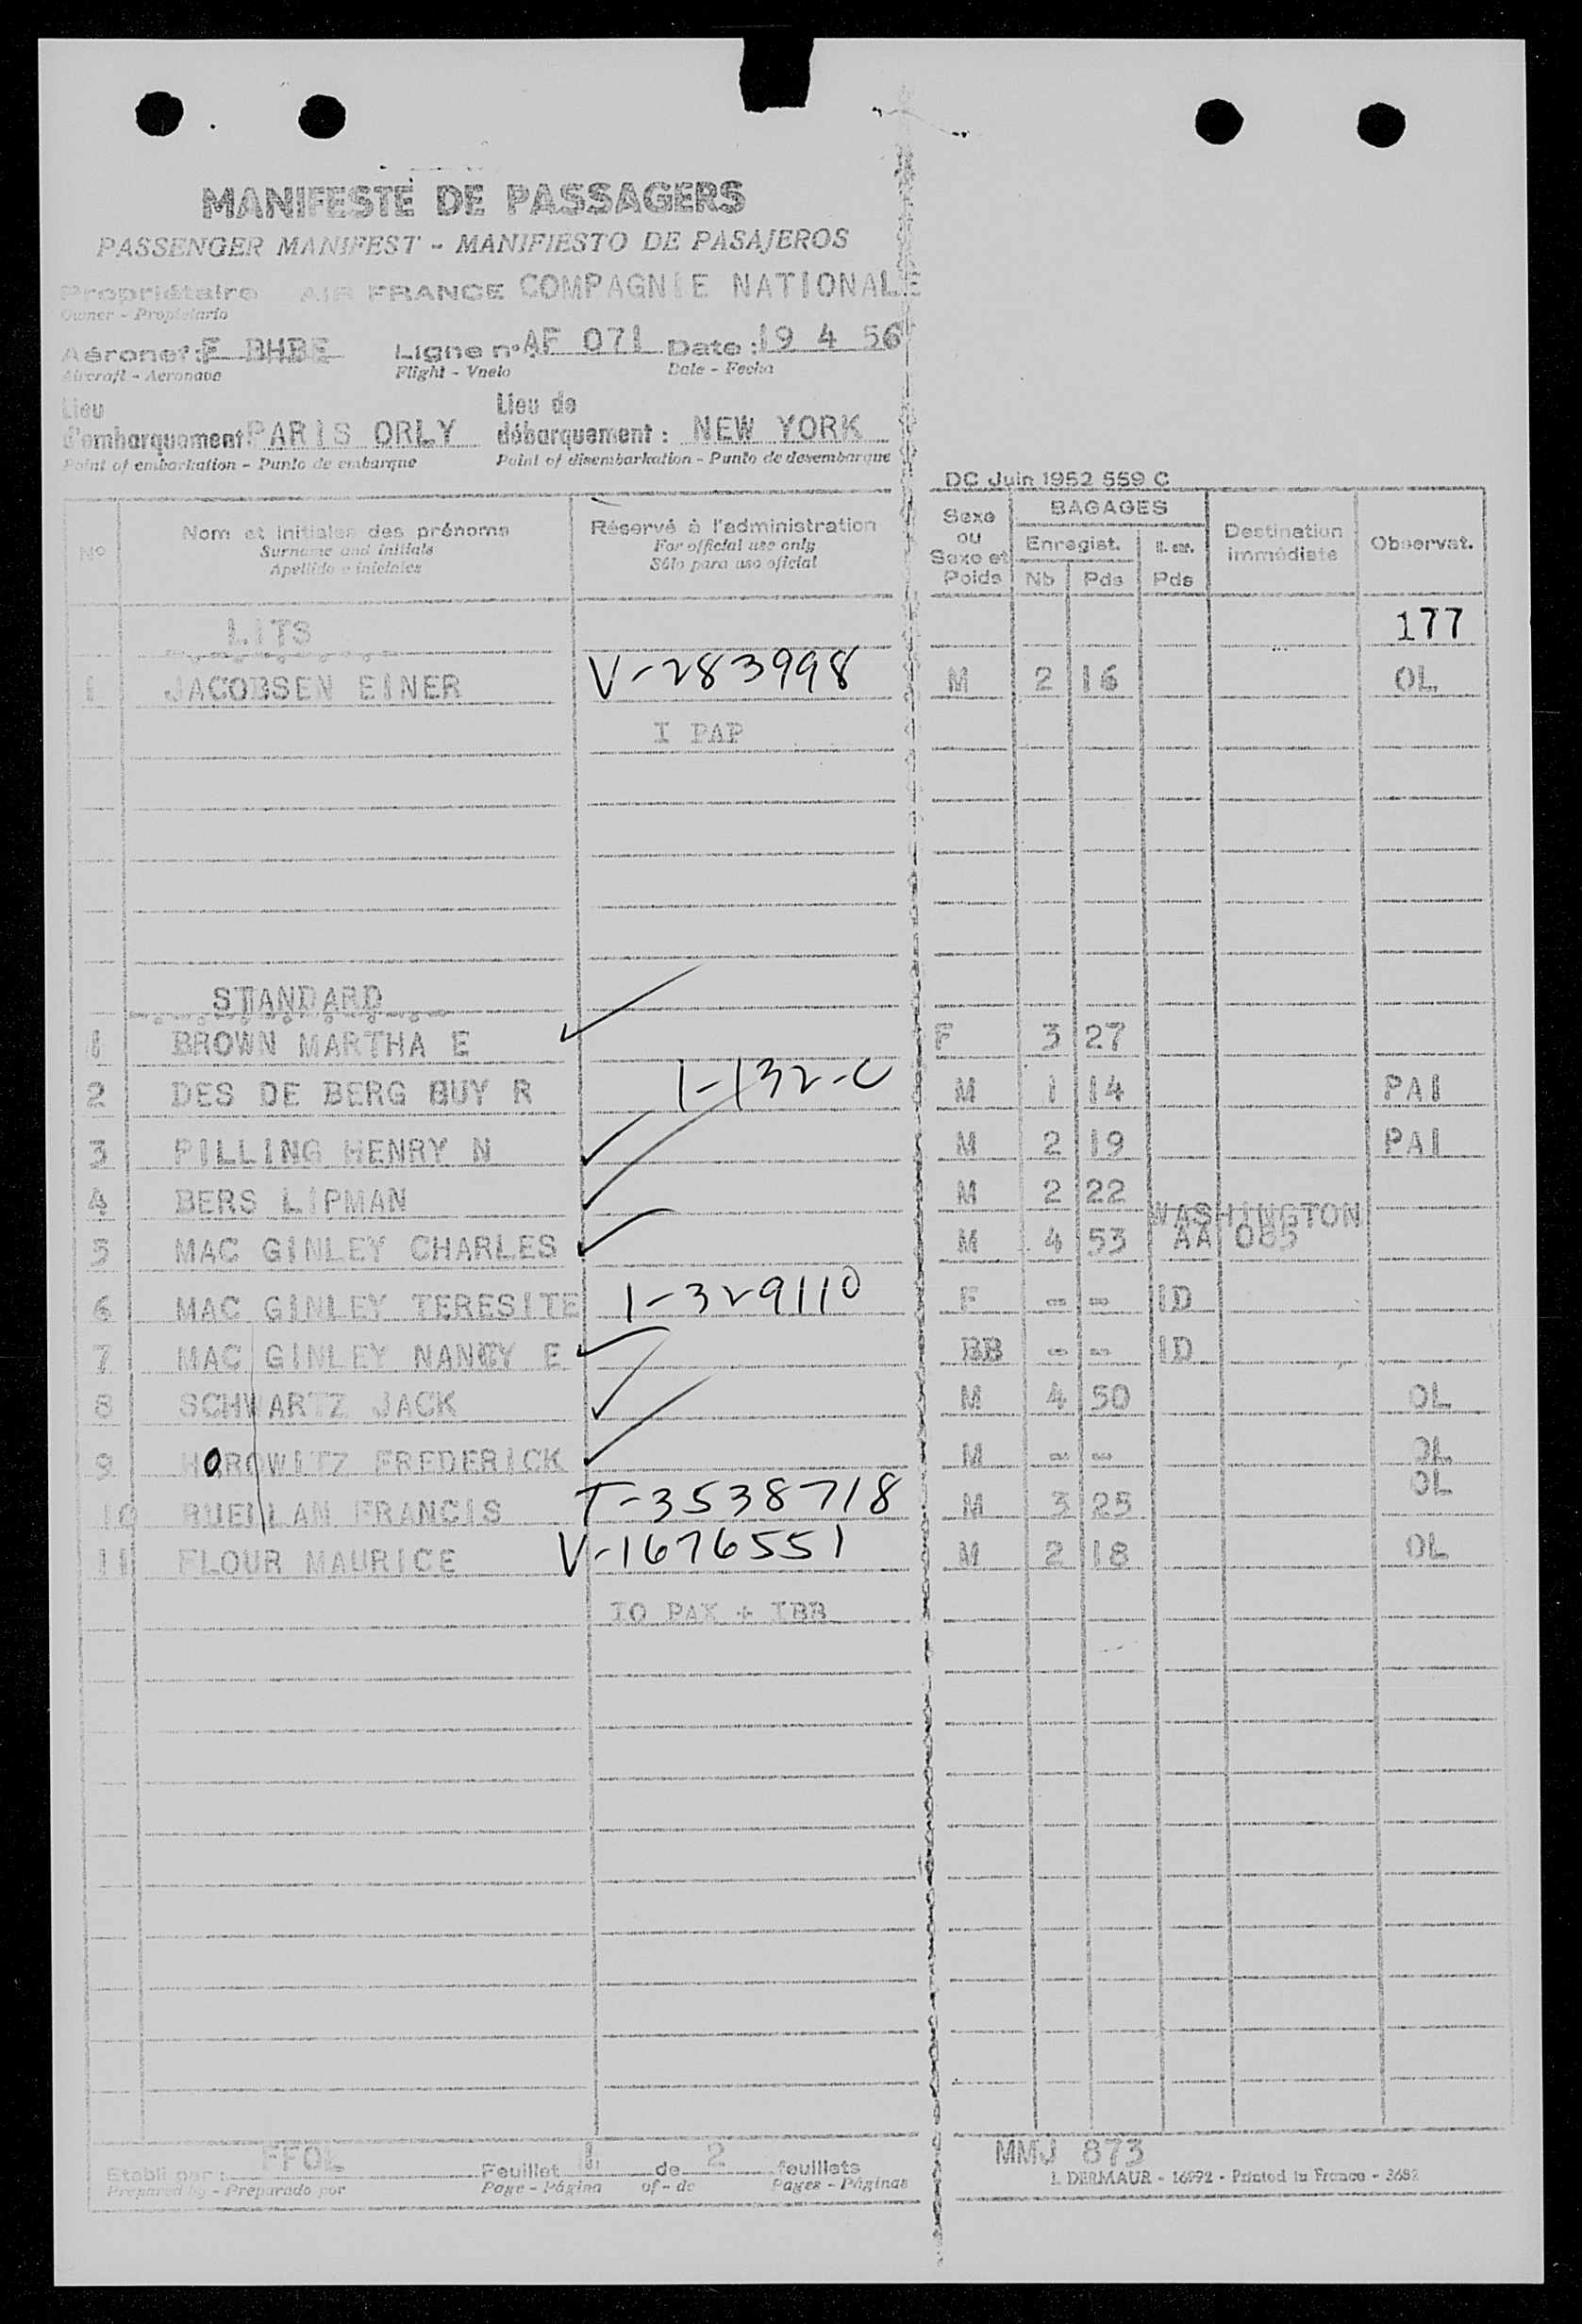 MANIFESTE DE PASSAGERS
PASSENGER MANIFEST - MANIFIESTO DE PASAJEROS
Propriétaire AIR FRANCE COMPAGNIE NATIONALE
Owner - Propietario
Aéronef : F BHBE Ligne n° AF 071 Date : 19 4 56
Aircraft - Aeronave Flight - Vuelo Date - Fecha
Lieu d'embarquement PARIS ORLY Lieu de débarquement : NEW YORK
Point of embarkation - Punto de embarque Point of disembarkation - Punto de desembarque
DC Juin 1952 559 C
No Nom et initiales des prénoms Réservé à l'administration Sexe ou Sexe et Poids BAGAGES Enregist. Nb Pds Pds Destination immédiate Observat.
Surname and initials For official use only
Apellido e iniciales Sólo para uso oficial
LITS 177
1 JACOBSEN EINER V-283998 M 2 16 OL
I PAP
STANDARD
1 BROWN MARTHA E F 3 27
2 DES DE BERG BUY R 1-132-C M 1 14 PAI
3 PILLING HENRY N M 2 19 PAI
4 BERS LIPMAN M 2 22
WASHINGTON
5 MAC GINLEY CHARLES M 4 53 AA 065
6 MAC GINLEY TERESITE 1-329110 F - - ID
7 MAC GINLEY NANCY E BB - - ID
8 SCHWARTZ JACK M 4 50 OL
9 HOROWITZ FREDERICK M - - OL
10 RUELLAN FRANCIS T-3538718 M 3 25 OL
11 FLOUR MAURICE V-1676551 M 2 18 OL
IO PAX + IBB
Etabli par : FFOL Feuillet 1 de 2 feuillets MMJ 873
Prepared by - Preparado por Page - Página of - de Pages - Páginas I. DERMAUR - 16992 - Printed in France - 3682